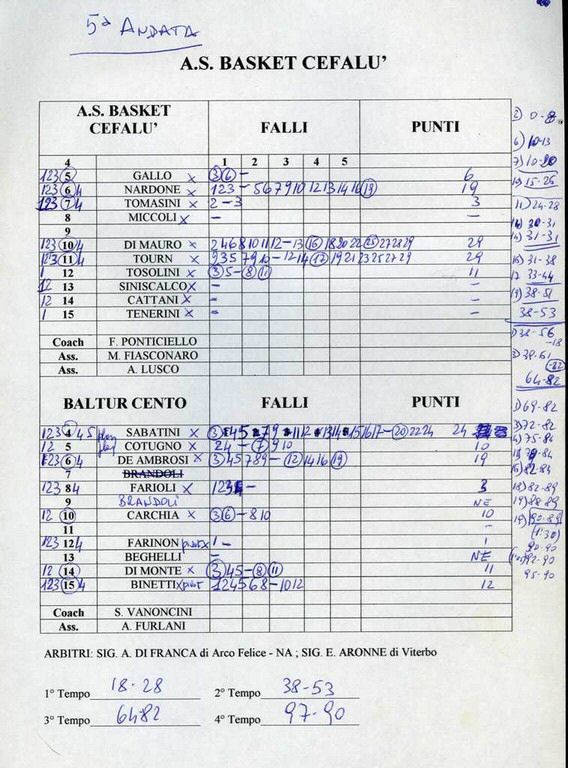 5ª ANDATA
A.S. BASKET CEFALU'
A.S. BASKET CEFALU' FALLI PUNTI
4 1 2 3 4 5
123 5 4 GALLO x 3 6 - 6
123 6 4 NARDONE x 123 - 5 6 7 9 10 12 13 14 16 19 19
123 7 4 TOMASINI x 2 - 3 3
8 MICCOLI x - -
9
123 10 4 DI MAURO x 2 4 6 8 10 11 12 - 13 16 18 20 22 25 27 28 29 29
123 11 4 TOURN x 2 3 5 7 9 10 - 12 14 17 19 21 23 25 27 29 29
1 12 TOSOLINI x 3 5 - 8 11 11
12 13 SINISCALCO x - -
12 14 CATTANI x - -
1 15 TENERINI x - -
Coach F. PONTICIELLO
Ass. M. FIASCONARO
Ass. A. LUSCO
BALTUR CENTO FALLI PUNTI
123 4 4 5 play SABATINI x 24
12 5 play COTUGNO x 2 4 - 7 9 10 10
123 6 4 DE AMBROSI x 3 4 5 7 8 9 - 12 14 16 19 19
7 BRANDOLI
123 8 4 FARIOLI x 3
9 BRANDOLI NE
12 10 CARCHIA x 3 6 - 8 10 10
11 -
123 12 4 FARINON x 1 - 1
13 BEGHELLI - NE
12 14 DI MONTE x 3 4 5 - 8 11 11
123 15 4 BINETTI x 1 2 4 5 6 8 - 10 12 12
Coach S. VANONCINI
Ass. A. FURLANI
ARBITRI: SIG. A. DI FRANCA di Arco Felice - NA ; SIG. E. ARONNE di Viterbo
1° Tempo 18-28 2° Tempo 38-53
3° Tempo 64-82 4° Tempo 97-90
2) 0-8
6) 10-13
7) 10-20
15-26
11) 24-28
30-31
31-31
31-38
33-44
38-51
38-53
38-56
64-82
69-82
72-82
75-84
82-84
82-89
88-89
90-89
90-90
92-90
95-90